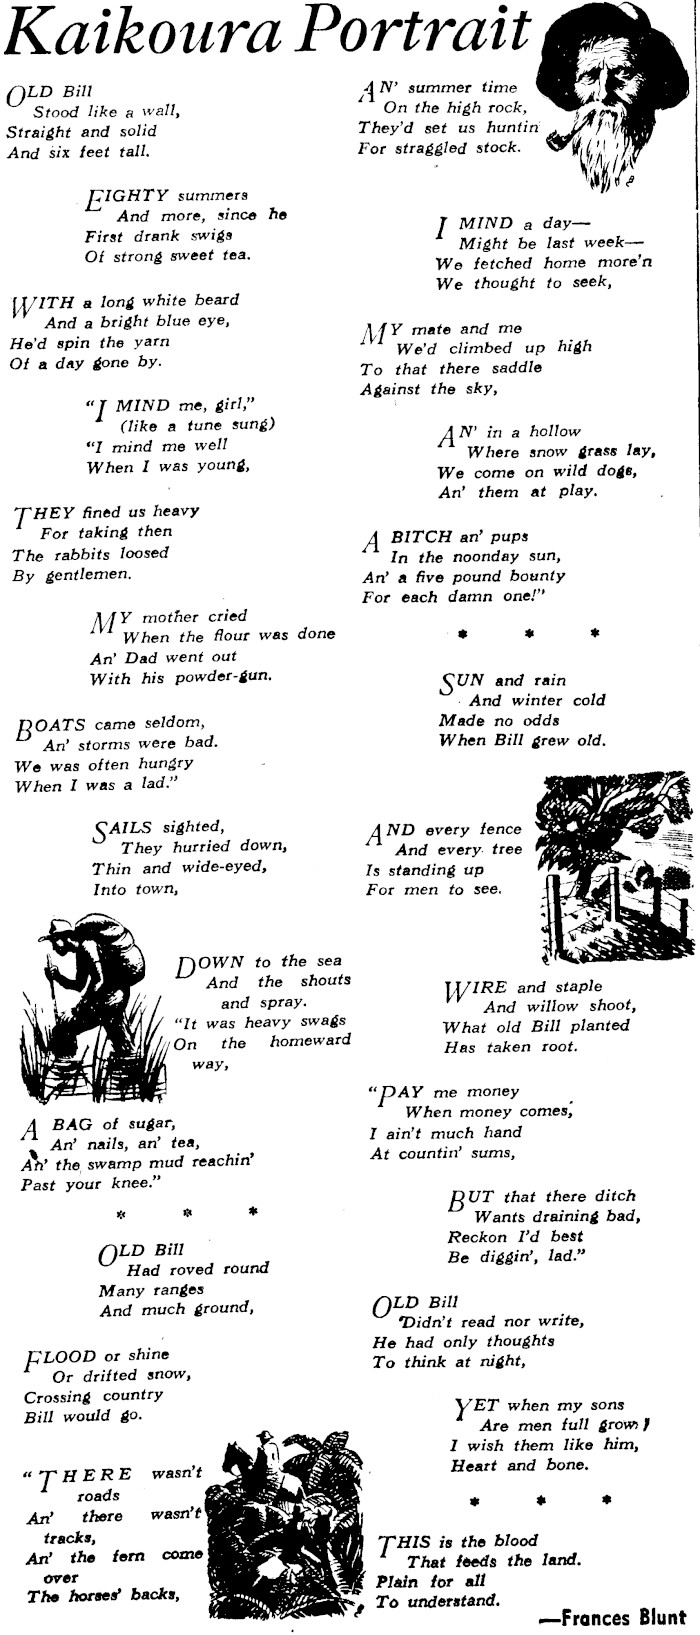 Kaikoura Portrait
OLD Bill
Stood like a wall,
Straight and solid
And six feet tall.
EIGHTY summers
And more, since he
First drank swigs
Of strong sweet tea.
WITH a long white beard
And a bright blue eye,
He'd spin the yarn
Of a day gone by.
"I MIND me, girl,"
(like a tune sung)
"I mind me well
When I was young,
THEY fined us heavy
For taking then
The rabbits loosed
By gentlemen.
MY mother cried
When the flour was done
An' Dad went out
With his powder-gun.
BOATS came seldom,
An' storms were bad.
We was often hungry
When I was a lad."
SAILS sighted,
They hurried down,
Thin and wide-eyed,
Into town,
DOWN to the sea
And the shouts
and spray.
"It was heavy swags
On the homeward
way,
A BAG of sugar,
An' nails, an' tea,
An' the swamp mud reachin'
Past your knee."
* * *
OLD Bill
Had roved round
Many ranges
And much ground,
FLOOD or shine
Or drifted snow,
Crossing country
Bill would go.
"THERE wasn't
roads
An' there wasn't
tracks,
An' the fern come
over
The horses' backs,
AN' summer time
On the high rock,
They'd set us huntin
For straggled stock.
I MIND a day—
Might be last week—
We fetched home more'n
We thought to seek,
MY mate and me
We'd climbed up high
To that there saddle
Against the sky,
AN' in a hollow
Where snow grass lay,
We come on wild dogs,
An' them at play.
A BITCH an' pups
In the noonday sun,
An' a five pound bounty
For each damn one!"
* * *
SUN and rain
And winter cold
Made no odds
When Bill grew old.
AND every fence
And every tree
Is standing up
For men to see.
WIRE and staple
And willow shoot,
What old Bill planted
Has taken root.
"PAY me money
When money comes,
I ain't much hand
At countin' sums,
BUT that there ditch
Wants draining bad,
Reckon I'd best
Be diggin', lad."
OLD Bill
Didn't read nor write,
He had only thoughts
To think at night,
YET when my sons
Are men full grown
I wish them like him,
Heart and bone.
* * *
THIS is the blood
That feeds the land.
Plain for all
To understand.
—Frances Blunt